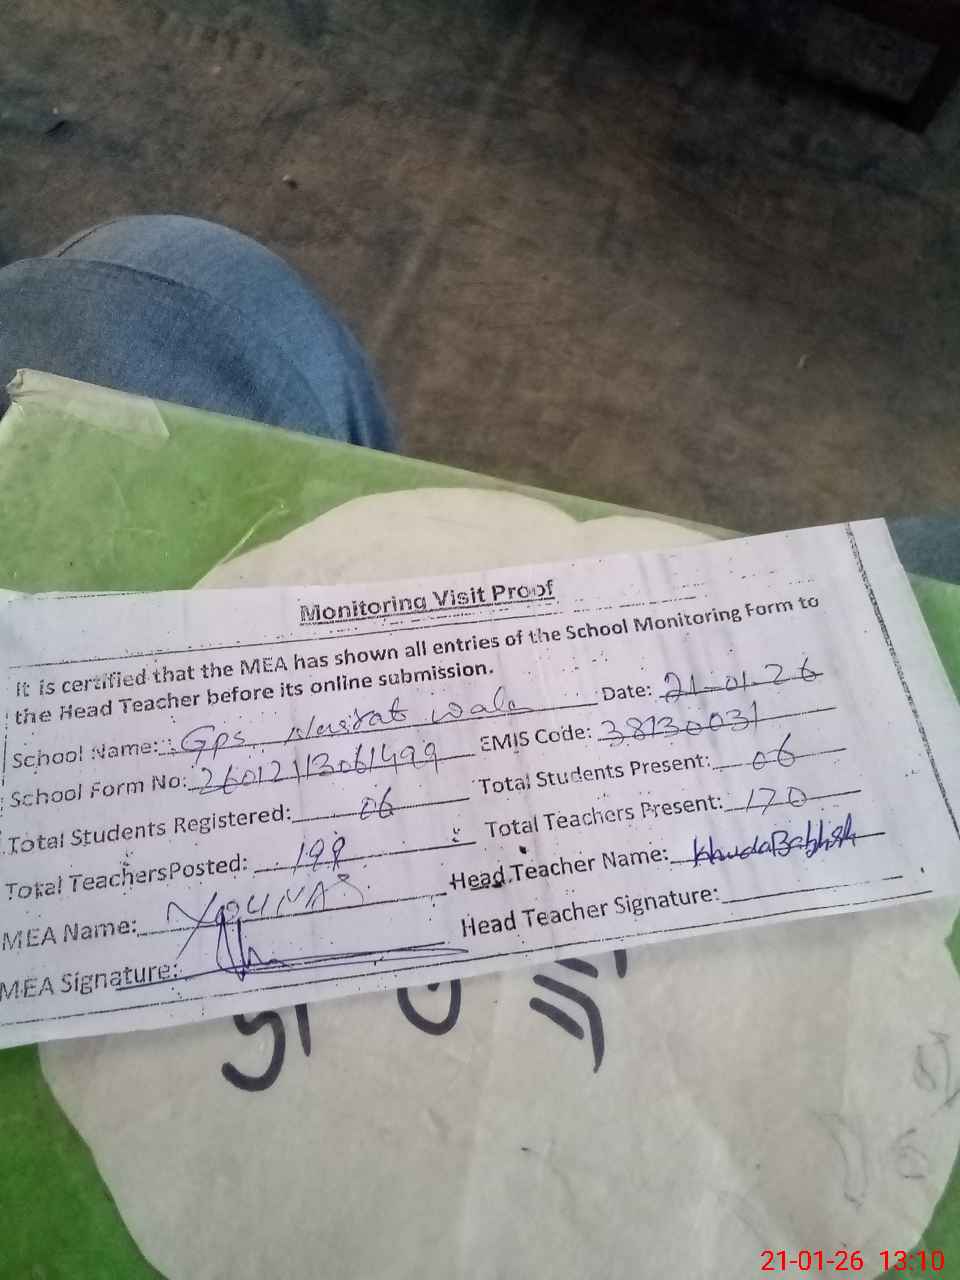 Monitoring Visit Proof
It is certified that the MEA has shown all entries of the School Monitoring Form to
the Head Teacher before its online submission.
School Name: Gps Nusrat wala Date: 21-01-26
School Form No: 26012113061499 EMIS Code: 38130031
Total Students Registered: 06 Total Students Present: 06
Total TeachersPosted: 199 Total Teachers Present: 170
MEA Name: Head Teacher Name: KhudaBakhsh
MEA Signature: Head Teacher Signature:
21-01-26 13:10